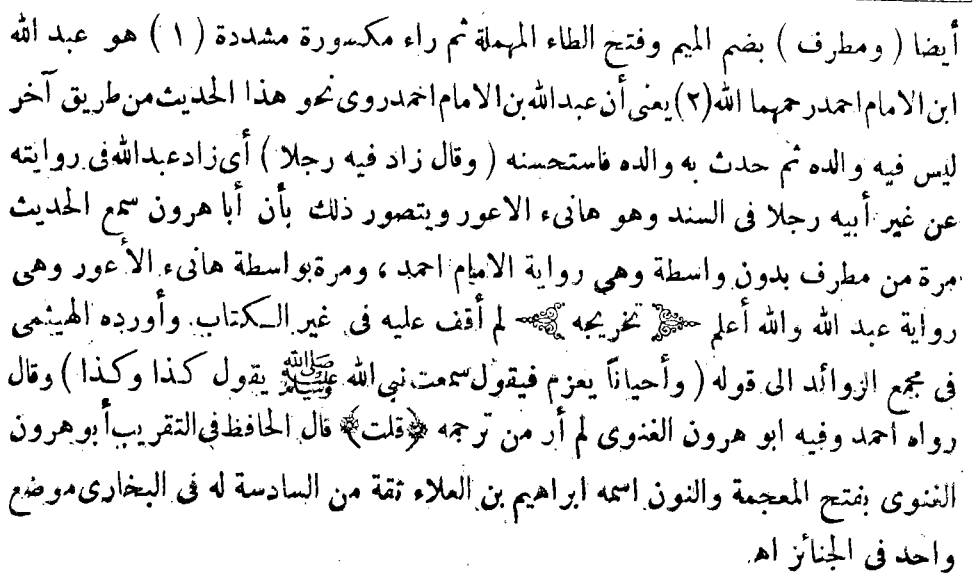 أيضا ( ومطرف ) بضم الميم وفتح الطاء المهملة ثم راء مكسورة مشددة ( ١ ) هو عبد الله
ابن الامام احمد رحمهما الله (٢) يعنى أن عبد الله بن الامام احمد روى نحو هذا الحديث من طريق آخر
ليس فيه والده ثم حدث به والده فاستحسنه ( وقال زاد فيه رجلا ) أى زاد عبد الله فى روايته
عن غير أبيه رجلا فى السند وهو هانىء الاعور ويتصور ذلك بأن أبا هرون سمع الحديث
مرة من مطرف بدون واسطة وهي رواية الامام احمد ، ومرة بواسطة هانىء الأعور وهى
رواية عبد الله والله أعلم ﴿ تخريجه ﴾ لم أقف عليه فى غير الكتاب. وأورده الهيثمى
فى مجمع الزوائد الى قوله ( وأحياناً يعزم فيقول سمعت نبى الله ﷺ يقول كذا وكذا ) وقال
رواه احمد وفيه ابو هرون الغنوى لم أر من ترجمه ﴿قلت﴾ قال الحافظ فى التقريب أبو هرون
الغنوى بفتح المعجمة والنون اسمه ابراهيم بن العلاء ثقة من السادسة له فى البخارى موضع
واحد فى الجنائز اهـ